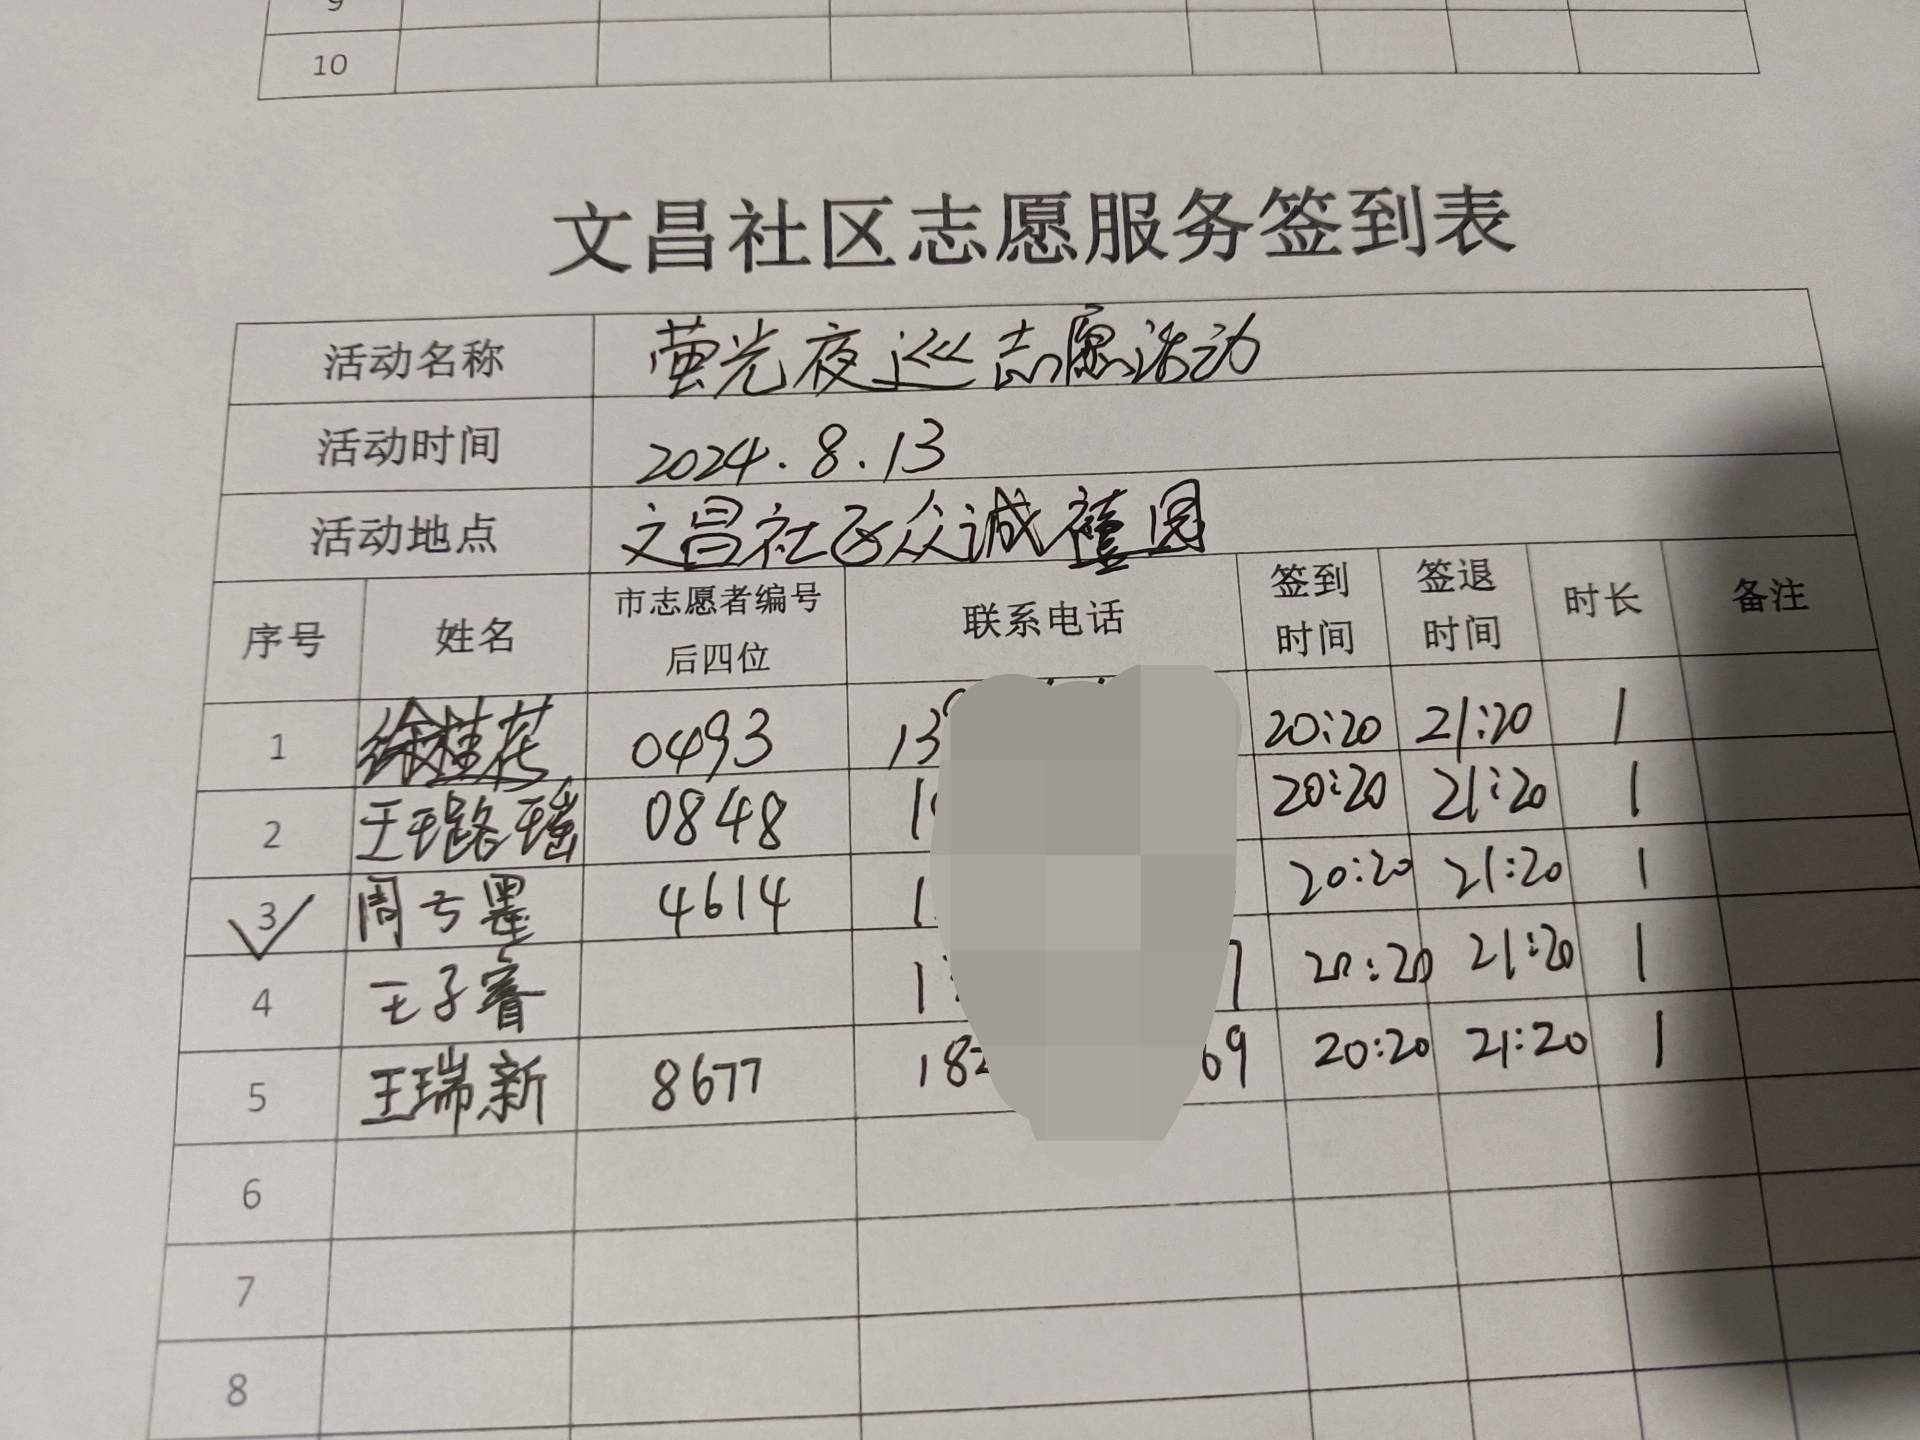 9
10
文昌社区志愿服务签到表
活动名称 萤光夜巡志愿活动
活动时间 2024.8.13
活动地点 文昌社区众诚禧园
序号 姓名 市志愿者编号后四位 联系电话 签到时间 签退时间 时长 备注
1 徐桂花 0493 13 20:20 21:20 1
2 王璐瑶 0848 1 20:20 21:20 1
3 周子墨 4614 1 20:20 21:20 1
4 王子睿 1 7 20:20 21:20 1
5 王瑞新 8677 182 69 20:20 21:20 1
6
7
8